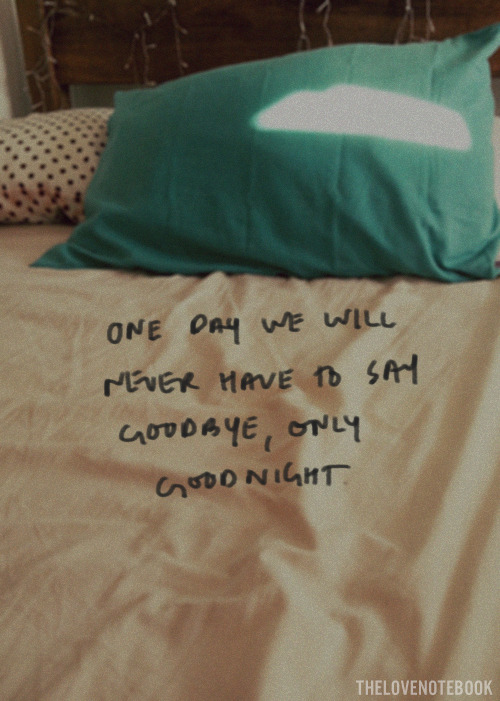 ONE DAY WE WILL
NEVER HAVE TO SAY
GOODBYE, ONLY
GOODNIGHT
THELOVENOTEBOOK